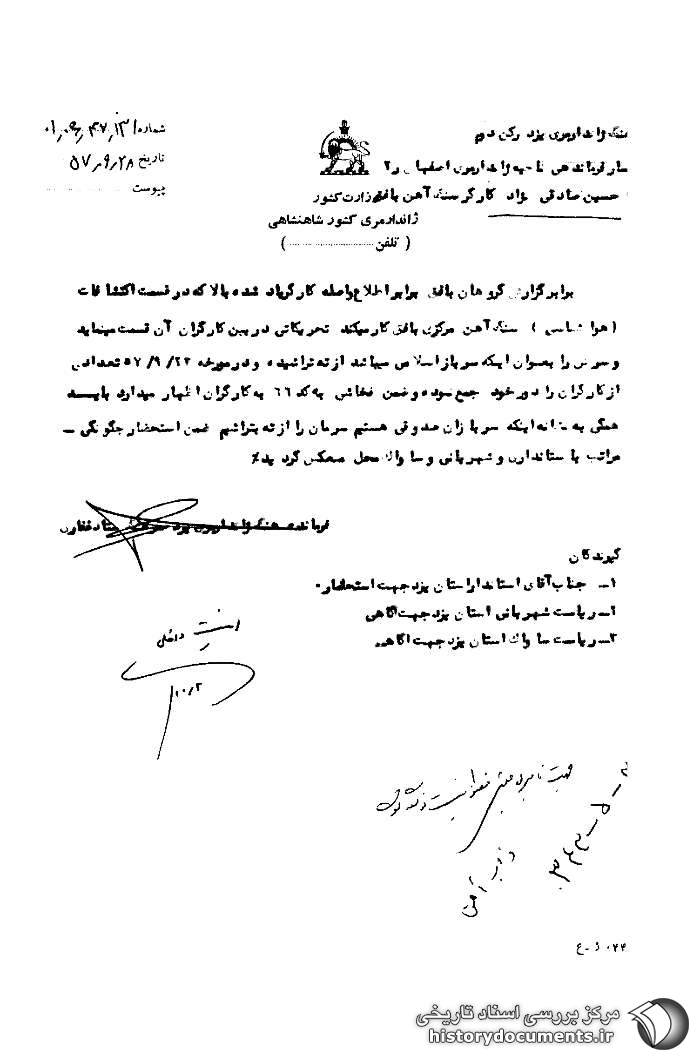 شماره ۰۱,۰۶,۴۷,۱۳
تاریخ ۵۷,۹,۲۸
پیوست
هنگ ژاندارمری یزد رکن دوم
فرماندهی ناحیه ژاندارمری اصفهان ر۲
حسین صادقی نژاد کارگر سنگ آهن بافق
وزارت کشور
ژاندارمری کشور شاهنشاهی
( تلفن ....................... )
برابر گزارش گروهان بافق برابر اطلاع واصله کارگر یاد شده بالا که در قسمت اکتشافات
(هوا شناسی ) سنگ آهن مرکزی بافق کار میکند تحریکاتی در بین کارگران آن قسمت مینماید
و سرش را بعنوان اینکه سرباز اسلام میباشد از ته تراشیده و در مورخه ۵۷/۹/۲۳ تعدادی
از کارگران را دور خود جمع نموده و ضمن فحاشی به کد ۶۶ به کارگران اظهار میدارد بایستد
همگی به نشانه اینکه سربازان صدوقی هستیم سرمان را از ته بتراشیم ضمن استحضار چگونگی ـ
مراتب با ستانداری و شهربانی و ساواک محل منعکس گردید٪
فرمانده هنگ ژاندارمری یزد
گیرندگان
۱ـ جناب آقای استاندار استان یزد جهت استحضار۰
۲ـ ریاست شهربانی استان یزد جهت آگاهی
۳ـ ریاست ساواک استان یزد جهت آگاهی
امنیت داخلی
۱۰/۳
جهت نامبرده
۰۲۴ ژ ـ ع
مرکز بررسی اسناد تاریخی
historydocuments.ir